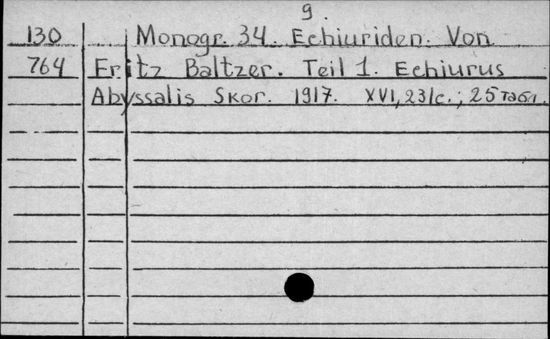 9.
130 Monogr. 34. Echiuriden. Von
764 Fritz Baltzer. Teil 1. Echiurus
Abyssalis Skor. 1917. XVI, 231c.; 25 табл.